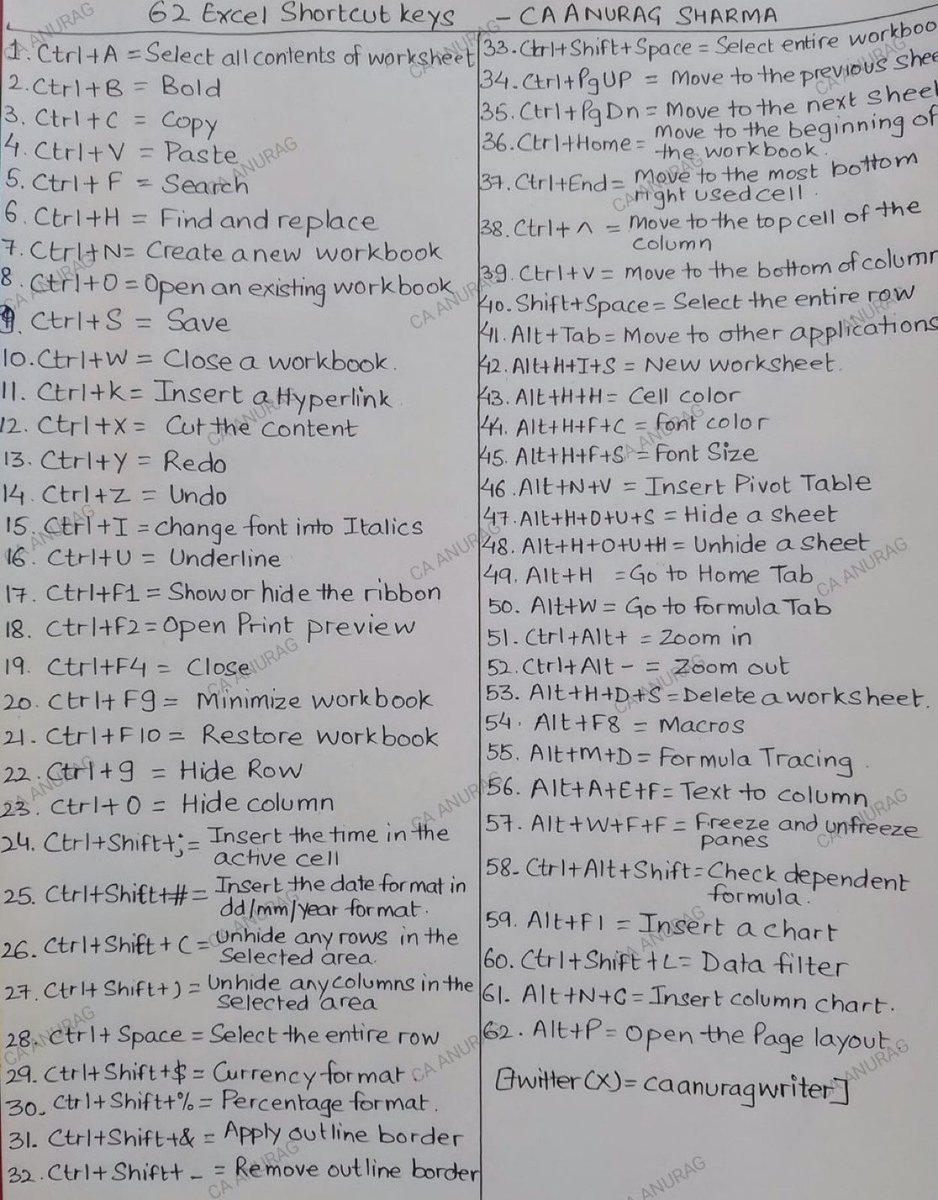 62 Excel Shortcut keys - CA ANURAG SHARMA
1. Ctrl+A = Select all contents of worksheet
2. Ctrl+B = Bold
3. Ctrl+C = Copy
4. Ctrl+V = Paste
5. Ctrl+F = Search
6. Ctrl+H = Find and replace
7. Ctrl+N= Create a new workbook
8. Ctrl+O = Open an existing workbook
9. Ctrl+S = Save
10. Ctrl+W = Close a workbook.
11. Ctrl+K= Insert a Hyperlink
12. Ctrl+X= Cut the content
13. Ctrl+Y = Redo
14. Ctrl+Z = Undo
15. Ctrl+I = change font into Italics
16. Ctrl+U = Underline
17. Ctrl+F1 = Show or hide the ribbon
18. Ctrl+F2=Open Print preview
19. Ctrl+F4 = Close
20. Ctrl+F9= Minimize workbook
21. Ctrl+F10 = Restore workbook
22. Ctrl+9 = Hide Row
23. Ctrl+0 = Hide column
24. Ctrl+Shift+;= Insert the time in the
active cell
25. Ctrl+Shift+#= Insert the date format in
dd/mm/year format.
26. Ctrl+Shift+C= Unhide any rows in the
Selected area.
27. Ctrl+Shift+)= Unhide any columns in the
Selected area
28. Ctrl+Space = Select the entire row
29. Ctrl+Shift+$ = Currency format
30. Ctrl+Shift+%= Percentage format.
31. Ctrl+Shift+& = Apply outline border
32. Ctrl+Shift+_ = Remove outline border
33. Ctrl+Shift+Space = Select entire workboo
34. Ctrl+PgUP = Move to the previous shee
35. Ctrl+PgDn= Move to the next sheet
36. Ctrl+Home= Move to the beginning of
the workbook.
37. Ctrl+End= Move to the most bottom
right used cell.
38. Ctrl+^ = Move to the top cell of the
column
39. Ctrl+v= Move to the bottom of column
40. Shift+Space= Select the entire row
41. Alt+Tab= Move to other applications
42. Alt+H+I+S = New worksheet.
43. Alt+H+H= Cell color
44. Alt+H+F+C = font color
45. Alt+H+F+S = Font Size
46. Alt+N+V = Insert Pivot Table
47. Alt+H+O+U+S = Hide a sheet
48. Alt+H+O+U+H = Unhide a sheet
49. Alt+H = Go to Home Tab
50. Alt+W= Go to formula Tab
51. Ctrl+Alt+ = Zoom in
52. Ctrl+Alt- = Zoom out
53. Alt+H+D+S=Delete a worksheet.
54. Alt+F8 = Macros
55. Alt+M+D= Formula Tracing
56. Alt+A+E+F= Text to column
57. Alt+W+F+F = Freeze and unfreeze
panes
58. Ctrl+Alt+Shift=Check dependent
formula.
59. Alt+F1 = Insert a chart
60. Ctrl+Shift+L= Data filter
61. Alt+N+C=Insert column chart.
62. Alt+P= Open the Page layout.
[Twitter(X)= caanuragwriter]
CA ANURAG